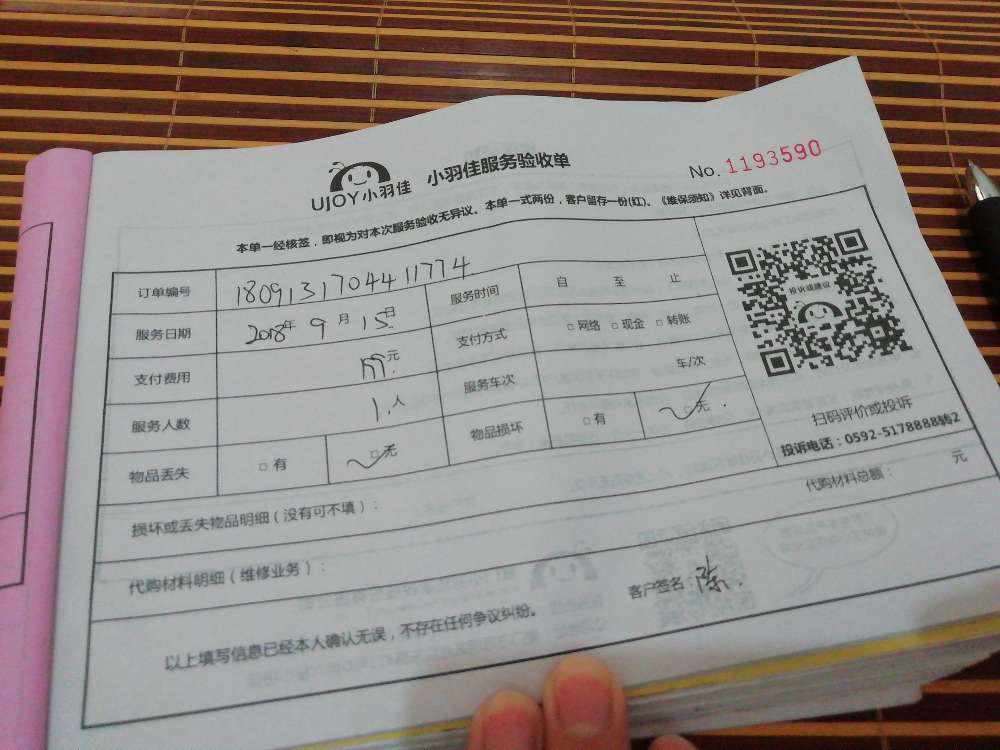 UJOY小羽佳 小羽佳服务验收单 No. 1193590
本单一经核签，即视为对本次服务验收无异议。本单一式两份，客户留存一份(红)。《维保须知》详见背面。
订单编号 1809131704411774 服务时间 自 至 止
服务日期 2018年 9月 15日 支付方式 □网络 □现金 □转账
支付费用 元 服务车次 车/次
服务人数 1.人 物品损坏 □有 □无
物品丢失 □有 □无
投诉或建议
扫码评价或投诉
投诉电话：0592-5178888转2
损坏或丢失物品明细（没有可不填）：
代购材料明细（维修业务）： 代购材料总额： 元
以上填写信息已经本人确认无误，不存在任何争议纠纷。 客户签名：陈.